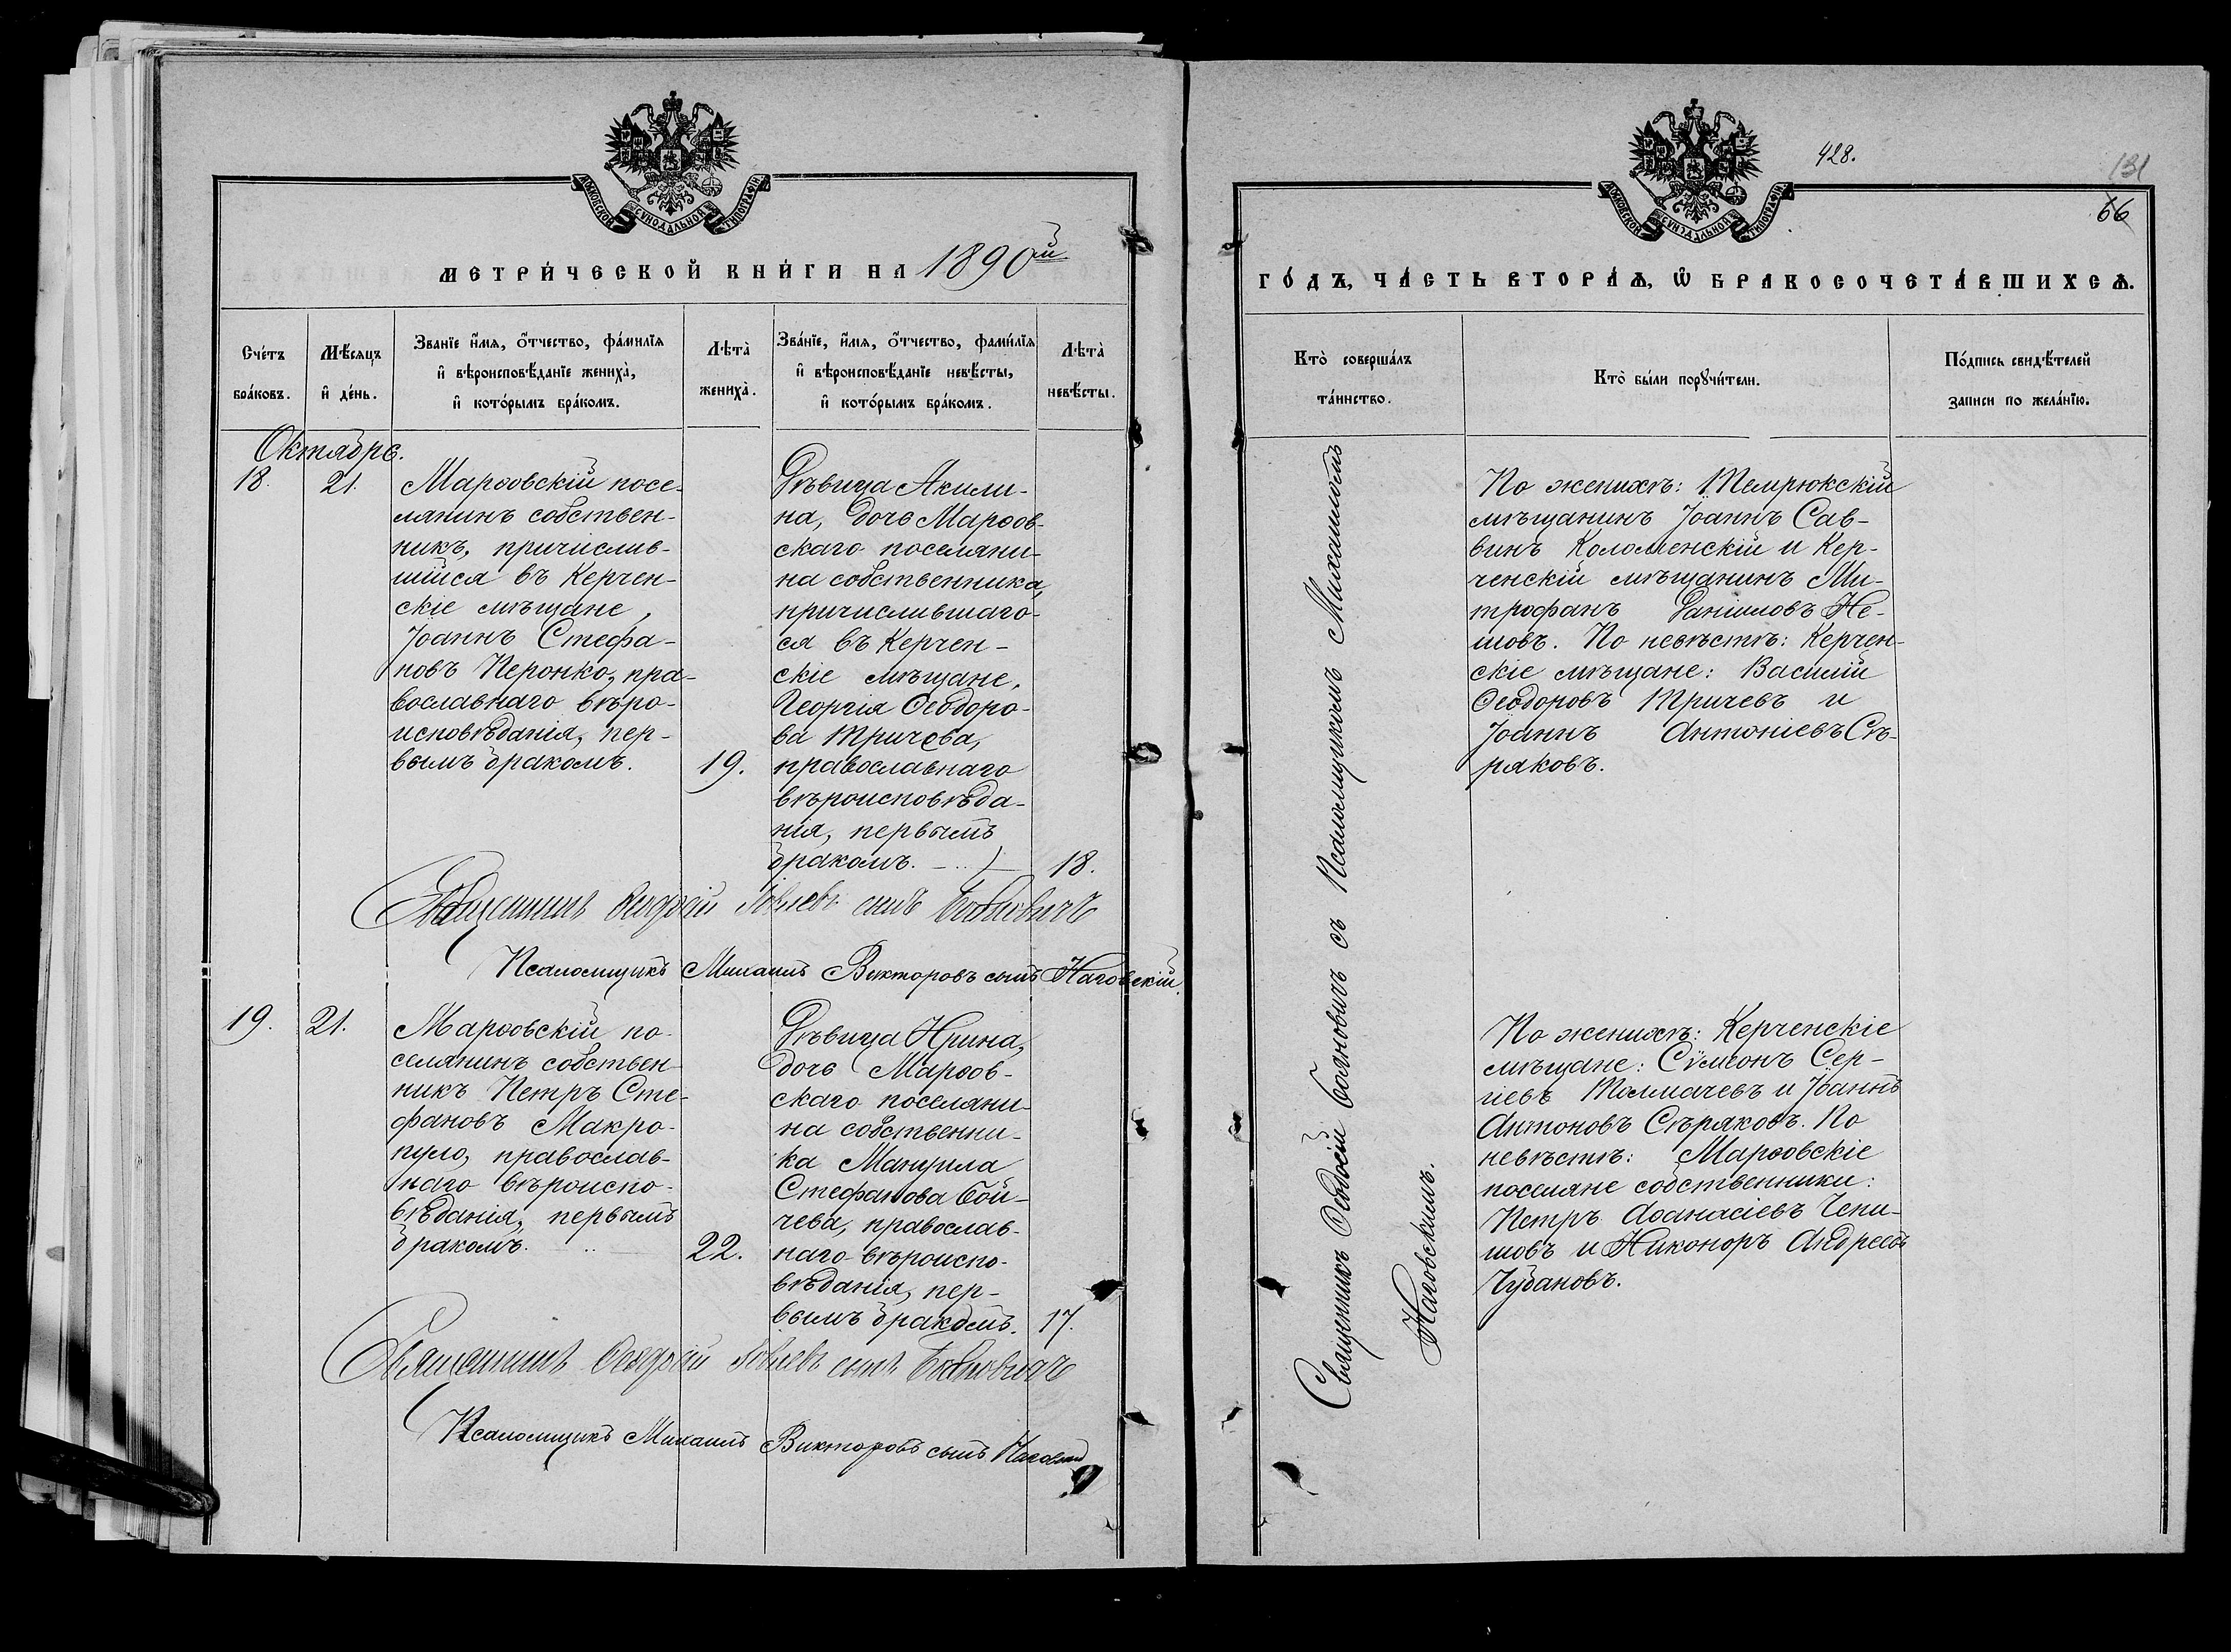 МОСКОВСКОЙ СѴНОДАЛЬНОЙ ТИПОГРАФІИ
МЕТРИ́ЧЕСКОЙ КНИ́ГИ НА 1890й
Сче́тъ бра́ковъ.
Мѣ́сяцъ и҆ де́нь.
Зва́нїе и҆́мѧ, ѻ҆́тчество, фамѝлїѧ
и҆ вѣроисповѣ́данїе жениха̀,
и҆ кото́рымъ бра́комъ.
Лѣта̀ жениха̀.
Зва́нїе, и҆́мѧ, ѻ҆́тчество, фамѝлїѧ
и҆ вѣроисповѣ́данїе невѣ́сты,
и҆ кото́рымъ бра́комъ.
Лѣта̀ невѣ́сты.
Октябрь.
18.
21.
Марѳовскій посе-
лянинъ собствен-
никъ, причислив-
шійся въ Керчен-
скіе мѣщане,
Іоаннъ Стефа-
новъ Перонко, пра-
вославнаго вѣро-
исповѣданія, пер-
вымъ бракомъ.
19.
Дѣвица Акили-
на, дочь Марѳов-
скаго поселяни-
на собственника,
причислившаго-
ся въ Керчен-
скіе мѣщане,
Георгія Ѳеодоро-
ва Тричева,
православнаго
вѣроисповѣда-
нія, первымъ
бракомъ.
18.
Священникъ Ѳеодосій сынъ
Псаломщикъ Михаилъ Викторовъ сынъ Наговскій.
19.
21.
Марѳовскій по-
селянинъ собствен-
никъ Петръ Сте-
фановъ Макро-
пуло, православ-
наго вѣроиспо-
вѣданія, первымъ
бракомъ.
22.
Дѣвица Ирина,
дочь Марѳов-
скаго поселяни-
на собственни-
ка Мануила
Стефанова Бой-
чева, православ-
наго вѣроиспо-
вѣданія, пер-
вымъ бракомъ.
17.
Священникъ Ѳеодосій сынъ
Псаломщикъ Михаилъ Викторовъ сынъ Наговскій
428.
131
66
МОСКОВСКОЙ СѴНОДАЛЬНОЙ ТИПОГРАФІИ
ГО́ДЪ, ЧА́СТЬ ВТОРА́Ѧ, Ѡ҆ БРАКОСОЧЕТА́ВШИХСѦ.
Кто̀ соверша́лъ
та́инство.
Кто̀ бы́ли порꙋчи́тели.
По́дпись свидѣ́телей
за́писи по жела́нїю.
Священникъ Ѳеодосій Бояновичъ съ Псаломщикомъ Михаиломъ
Наговскимъ.
По женихѣ: Темрюкскій
мѣщанинъ Іоаннъ Сав-
винъ Коломенскій и Кер-
ченскій мѣщанинъ Ми-
трофанъ Даніиловъ Не-
шовъ. По невѣстѣ: Керчен-
скіе мѣщане: Василій
Ѳеодоровъ Тричевъ и
Іоаннъ Антоніевъ Сѣ-
ряковъ.
По женихѣ: Керченскіе
мѣщане: Сѵмеонъ Сер-
гіевъ Толмачевъ и Іоаннъ
Антоновъ Сѣряковъ. По
невѣстѣ: Марѳовскіе
поселяне собственники:
Петръ Аѳанасіевъ Чепи-
шовъ и Никоноръ Андреевъ
Чубановъ.